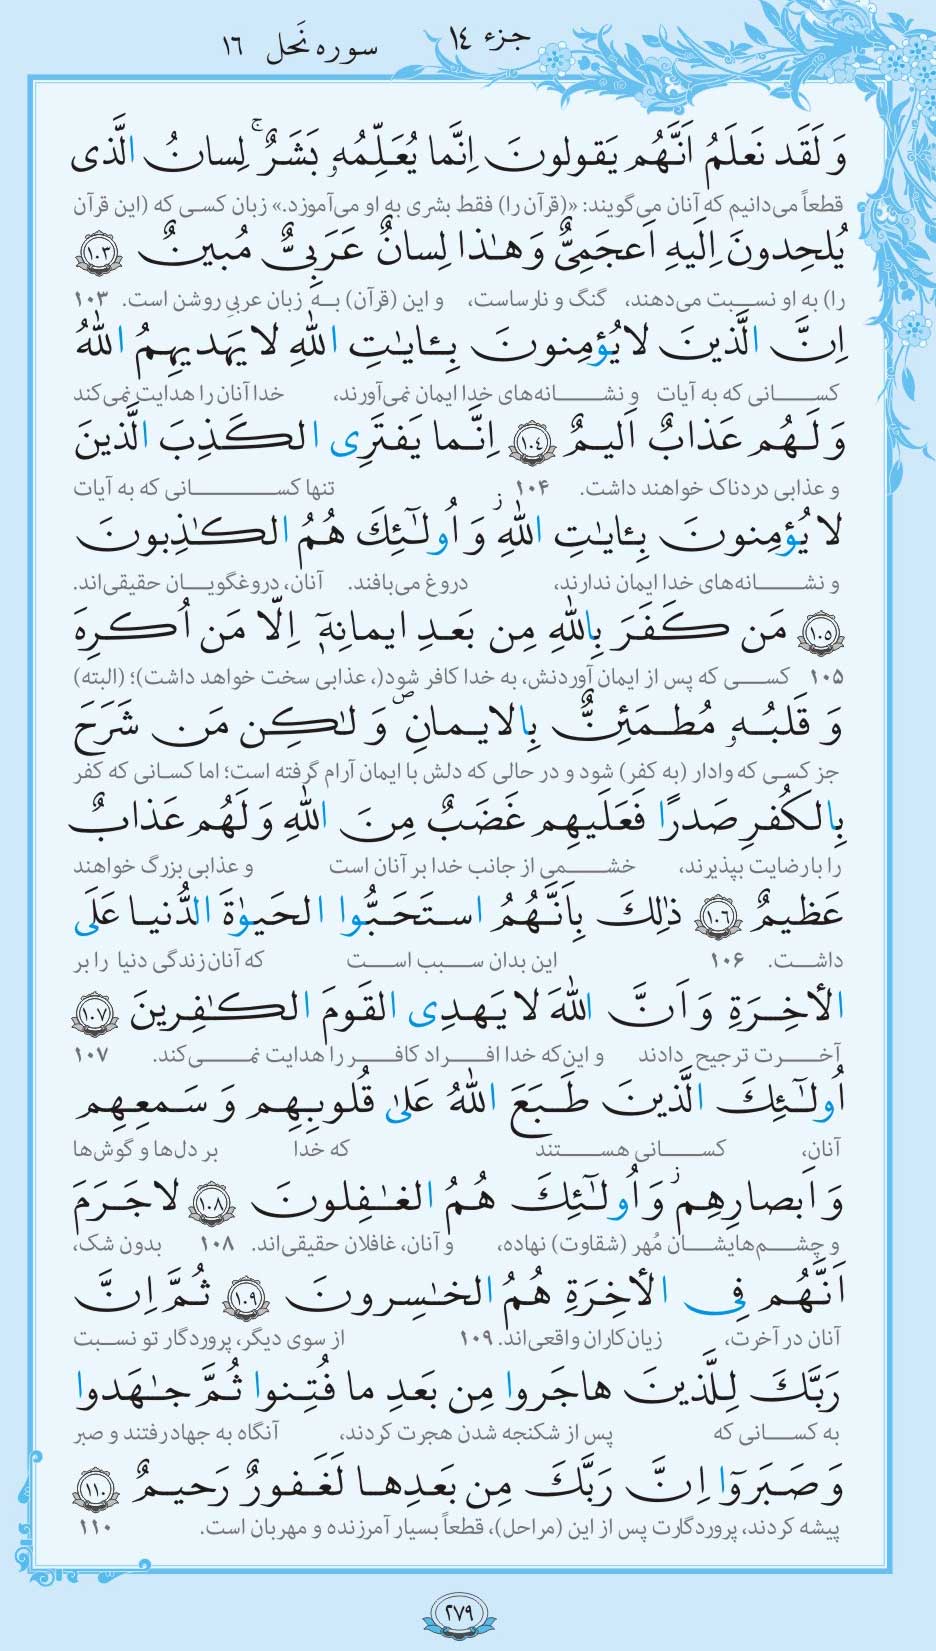 جزء ۱۴
سوره نَحل ۱۶
وَ لَقَد نَعلَمُ اَنَّهُم يَقولونَ اِنَّما يُعَلِّمُهٗ بَشَرٌ ۚ لِسانُ الَّذى
قطعاً می‌دانیم که آنان می‌گویند: «(قرآن را) فقط بشری به او می‌آموزد.» زبان کسـی که (این قرآن
يُلحِدونَ اِلَيهِ اَعجَمِىٌّ وَ هٰذا لِسانٌ عَرَبِىٌّ مُبينٌ ﴿۱۰۳﴾
را) به او نسـبت می‌دهند، گنگ و نارساست، و این (قرآن) بـه زبان عربیِ روشن است. ۱۰۳
اِنَّ الَّذينَ لا يُؤمِنونَ بِـٔايٰتِ اللّٰهِ لا يَهديهِمُ اللّٰهُ
کسـانی که به آیات و نشـانه‌های خدا ایمان نمی‌آورند، خدا آنان را هدایت نمی‌کند
وَ لَهُم عَذابٌ اَليمٌ ﴿۱۰۴﴾ اِنَّما يَفتَرِى الكَذِبَ الَّذينَ
و عذابی دردناک خواهند داشت. ۱۰۴ تنها کسـانی که به آیات
لا يُؤمِنونَ بِـٔايٰتِ اللّٰهِ ۖ وَ اُولٰٓئِكَ هُمُ الكٰذِبونَ
و نشـانه‌های خدا ایمان ندارند، دروغ می‌بافند. آنان، دروغگویـان حقیقی‌اند.
﴿۱۰۵﴾ مَن كَفَرَ بِاللّٰهِ مِن بَعدِ ايمانِهٖٓ اِلّا مَن اُكرِهَ
۱۰۵ کسـی که پس از ایمان آوردنش، به خدا کافر شود(، عذابی سخت خواهد داشت)؛ (البته)
وَ قَلبُهٗ مُطمَئِنٌّ بِالايمانِ وَ لٰكِن مَن شَرَحَ
جز کسـی که وادار (به کفر) شود و در حالی که دلش با ایمان آرام گرفته است؛ اما کسـانی که کفر
بِالكُفرِ صَدرًا فَعَلَيهِم غَضَبٌ مِنَ اللّٰهِ وَ لَهُم عَذابٌ
را بارضایت بپذیرند، خشـمی از جانب خدا بر آنان است و عذابی بزرگ خواهند
عَظيمٌ ﴿۱۰۶﴾ ذٰلِكَ بِاَنَّهُمُ استَحَبُّوا الحَيوٰةَ الدُّنيا عَلَى
داشـت. ۱۰۶ این بدان سـبب اسـت که آنان زندگی دنیا را بر
الأخِرَةِ وَ اَنَّ اللّٰهَ لا يَهدِى القَومَ الكٰفِرينَ ﴿۱۰۷﴾
آخـرت ترجیح دادند و این‌که خدا افـراد کافـر را هدایت نمـی‌کند. ۱۰۷
اُولٰٓئِكَ الَّذينَ طَبَعَ اللّٰهُ عَلىٰ قُلوبِهِم وَ سَمعِهِم
آنان، کسـانی هسـتند که خدا بر دل‌ها و گوش‌ها
وَ اَبصارِهِم ۖ وَ اُولٰٓئِكَ هُمُ الغٰفِلونَ ﴿۱۰۸﴾ لا جَرَمَ
و چشـم‌هایشـان مُهر (شقاوت) نهاده، و آنان، غافلان حقیقی‌اند. ۱۰۸ بدون شک،
اَنَّهُم فِى الأخِرَةِ هُمُ الخٰسِرونَ ﴿۱۰۹﴾ ثُمَّ اِنَّ
آنان در آخرت، زیان‌کاران واقعی‌اند. ۱۰۹ از سوی دیگر، پروردگار تو نسـبت
رَبَّكَ لِلَّذينَ هاجَروا مِن بَعدِ ما فُتِنوا ثُمَّ جٰهَدوا
به کسـانی که پس از شکنجه شدن هجرت کردند، آنگاه به جهاد رفتند و صبر
وَ صَبَرَوٓا اِنَّ رَبَّكَ مِن بَعدِها لَغَفورٌ رَحيمٌ ﴿۱۱۰﴾
پیشه کردند، پروردگارت پس از این (مراحل)، قطعاً بسیار آمرزنده و مهربان است. ۱۱۰
۲۷۹